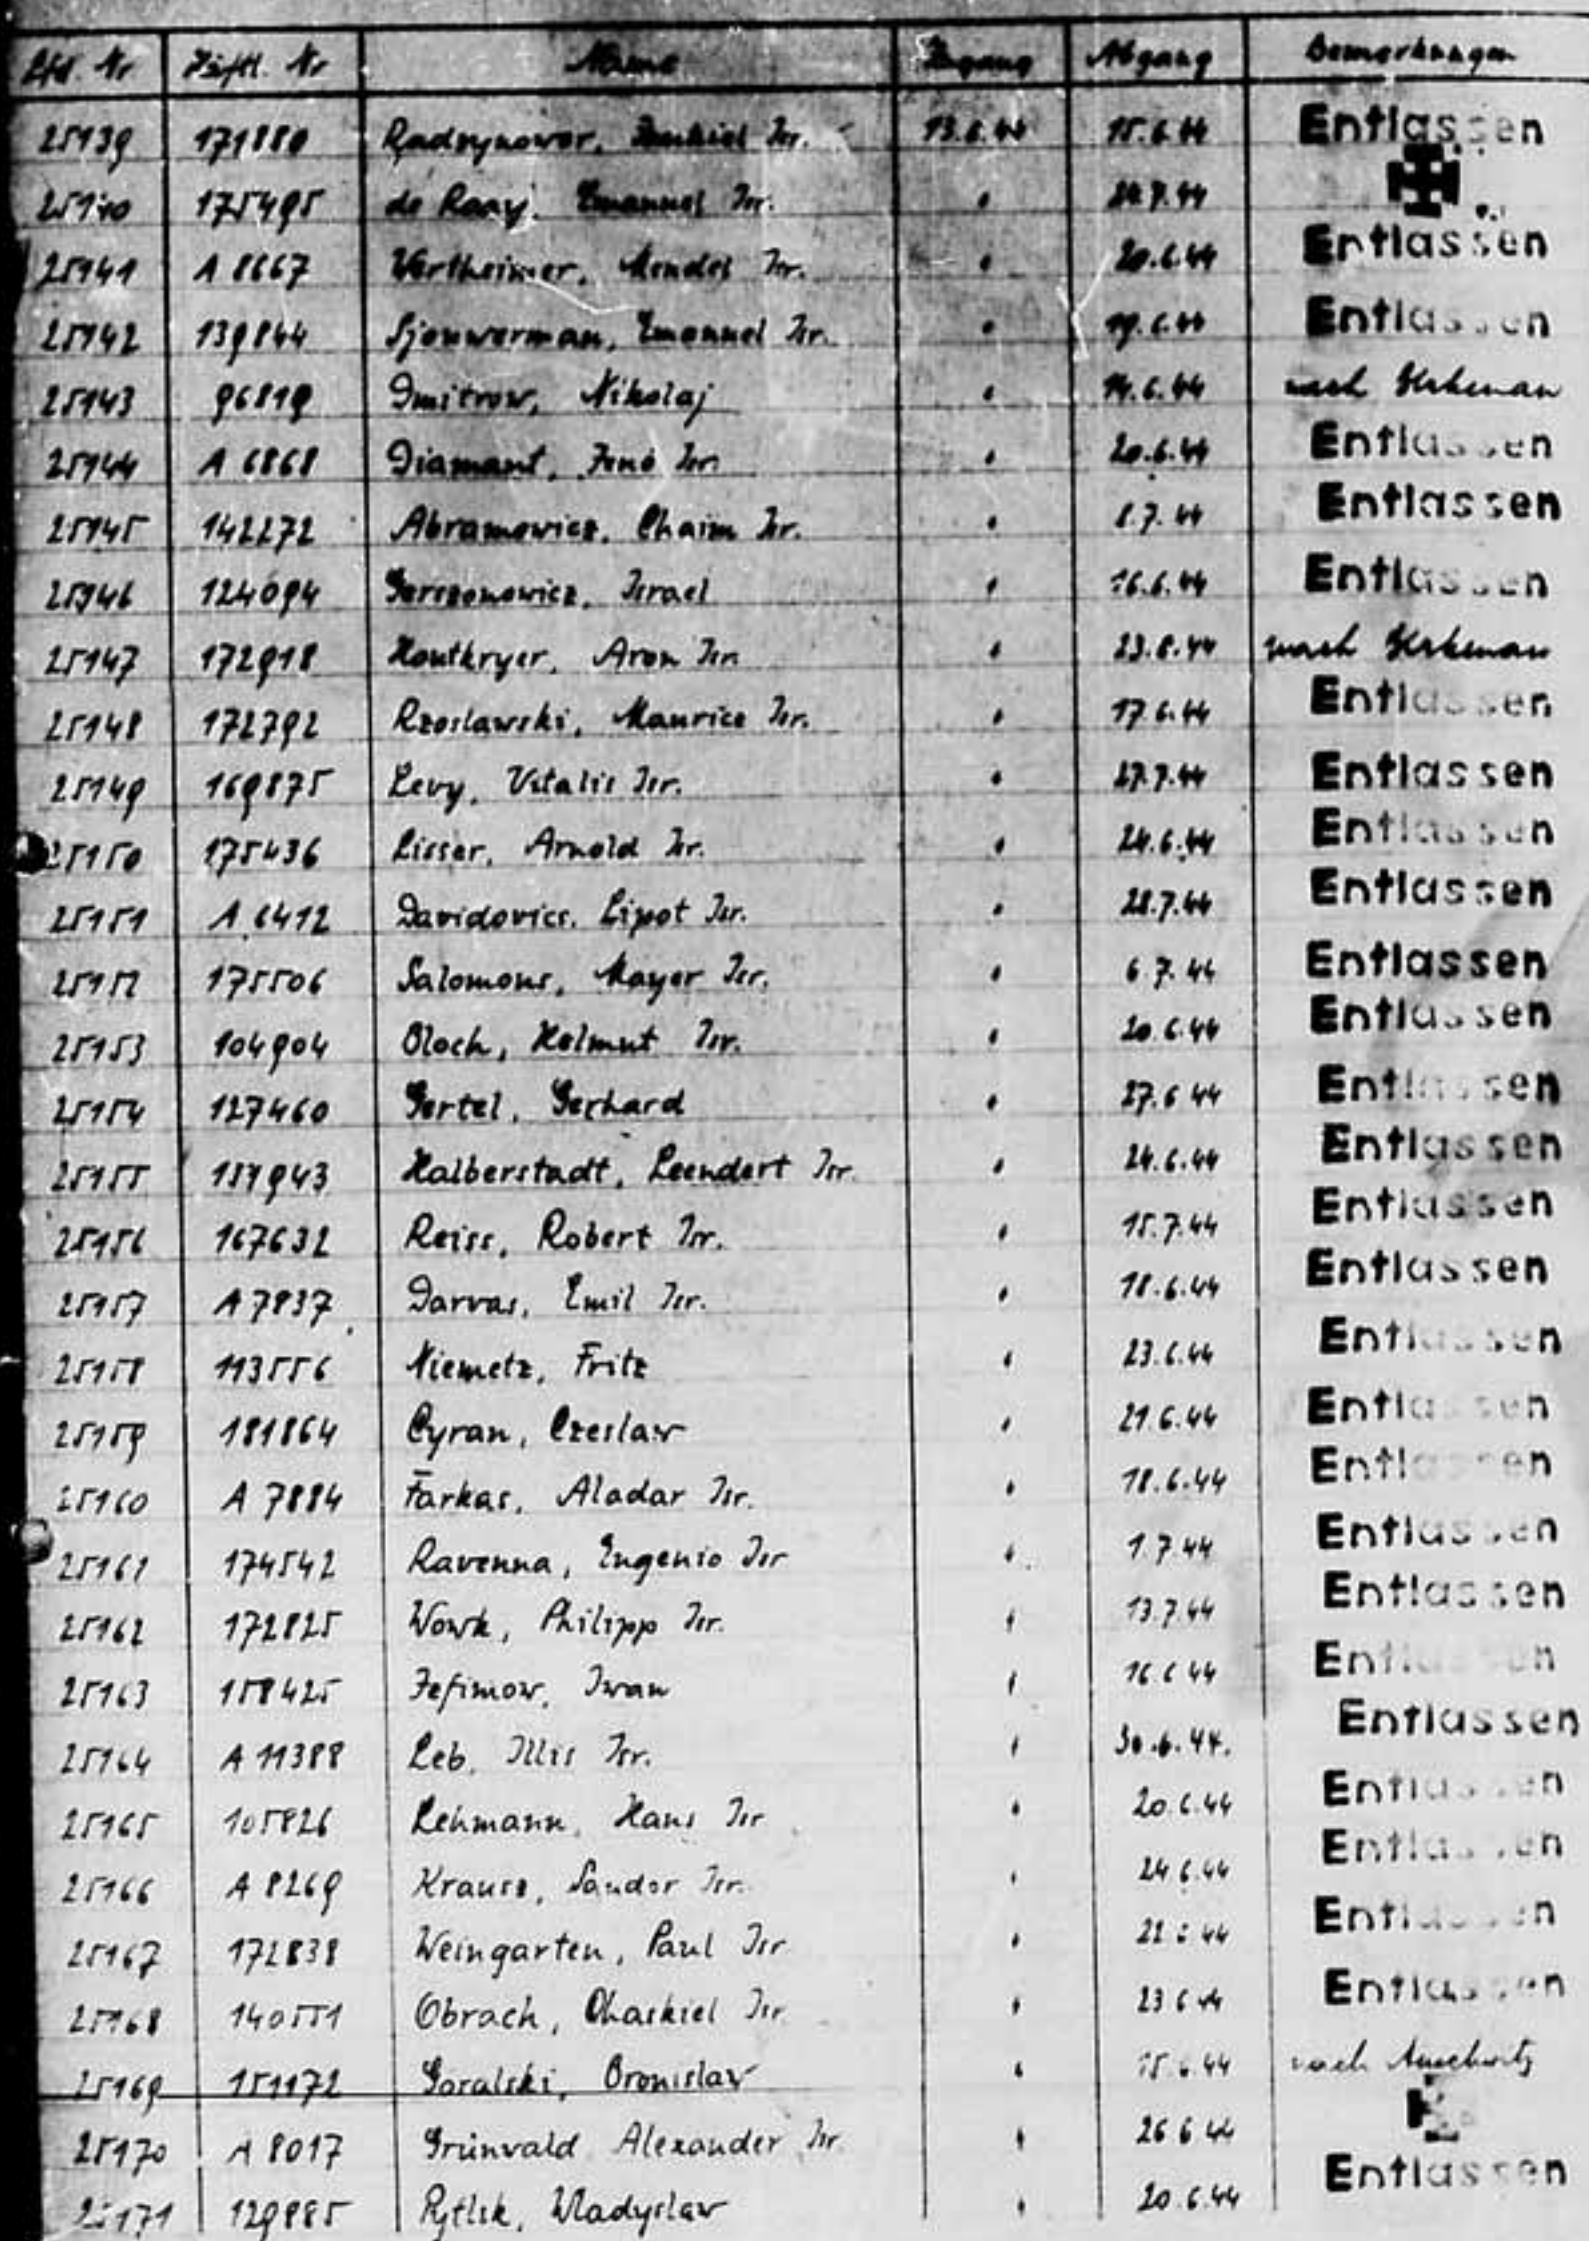 Lfd. Nr Häftl. Nr Name Zugang Abgang Bemerkungen
25139 171880 Isr. 13.6.44 15.6.44 Entlassen
25140 175495 de Raay, Emanuel Isr. " 44
25141 A 8667 Wertheimer, Mendel Isr. " 20.6.44 Entlassen
25142 139844 Sjouwerman, Emanuel Isr. " 19.6.44 Entlassen
25143 96819 Dmitrow, Nikolaj " 14.6.44 nach Birkenau
25144 A 6868 Diamant, Jenö Isr. " 20.6.44 Entlassen
25145 142272 Abramowicz, Chaim Isr. " 8.7.44 Entlassen
25146 124094 Gerszonowicz, Israel " 16.6.44 Entlassen
25147 172918 Houtkryer, Aron Isr. " 23.8.44 nach Birkenau
25148 172792 Rzoslawski, Maurice Isr. " 17.6.44 Entlassen
25149 169875 Levy, Vitalis Isr. " 27.7.44 Entlassen
25150 175436 Lisser, Arnold Isr. " 24.6.44 Entlassen
25151 A 6412 Davidovics, Lipot Isr. " 28.7.44 Entlassen
25152 175506 Salomons, Mayer Isr. " 6.7.44 Entlassen
25153 104904 Bloch, Helmut Isr. " 20.6.44 Entlassen
25154 127460 Gertel, Gerhard " 27.6.44 Entlassen
25155 157943 Halberstadt, Leendert Isr. " 24.6.44 Entlassen
25156 167632 Reiss, Robert Isr. " 15.7.44 Entlassen
25157 A 7837 Darvas, Emil Isr. " 18.6.44 Entlassen
25158 113556 Niemetz, Fritz " 23.6.44 Entlassen
25159 181864 Cyran, Czeslaw " 21.6.44 Entlassen
25160 A 7884 Farkas, Aladar Isr. " 18.6.44 Entlassen
25161 174542 Ravenna, Eugenio Isr " 1.7.44 Entlassen
25162 172825 Wowk, Philipp Isr. " 13.7.44 Entlassen
25163 158425 Jefimow, Iwan " 16.6.44 Entlassen
25164 A 11388 Leb, Illis Isr. " 30.6.44. Entlassen
25165 105826 Lehmann, Hans Isr " 20.6.44 Entlassen
25166 A 8269 Krausz, Sandor Isr. " 24.6.44 Entlassen
25167 172838 Weingarten, Paul Isr " 44 Entlassen
25168 140551 Obrach, Chaskiel Isr " 23.6.44 Entlassen
25169 151172 Goralski, Bronislaw " 15.6.44 nach Auschwitz
25170 A 8017 Grünvald Alexander Isr. " 26.6.44
25171 129885 Wladyslaw " 20.6.44 Entlassen